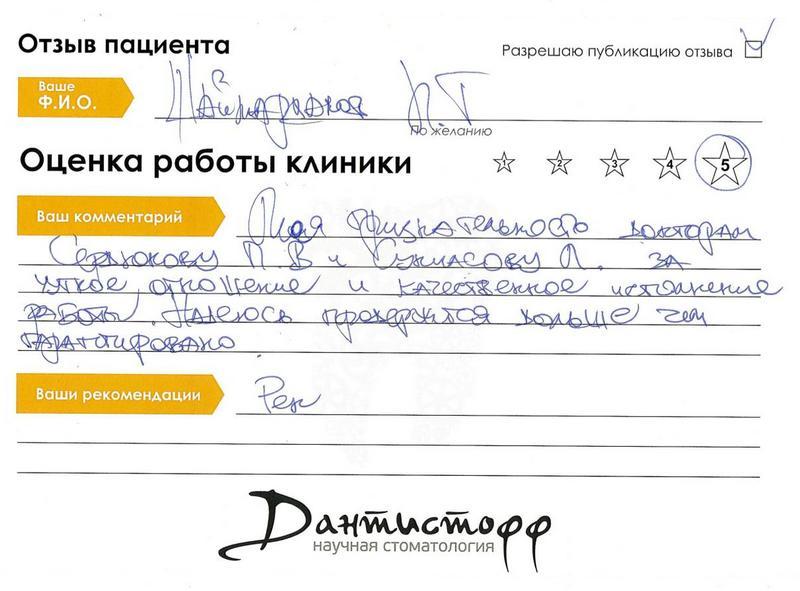 Отзыв пациента
Разрешаю публикацию отзыва
Ваше
Ф.И.О.
По желанию
Оценка работы клиники
1 2 3 4 5
Ваш комментарий
Моя признательность докторам
Сердюкову П.В и Л. за
чуткое отношение и качественное исполнение
работы. Надеюсь продержится дольше чем
гарантировано
Ваши рекомендации
Дантистофф
научная стоматология